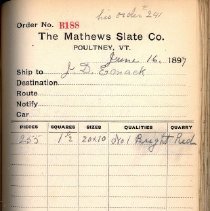 his order # 241
Order No. B188
The Mathews Slate Co.
POULTNEY, VT.
June 16, 1897
Ship to J. D. Esmack
Destination
Route
Notify
Car
PIECES SQUARES SIZES QUALITIES QUARRY
255 1½ 20x10 No 1 Bright Red